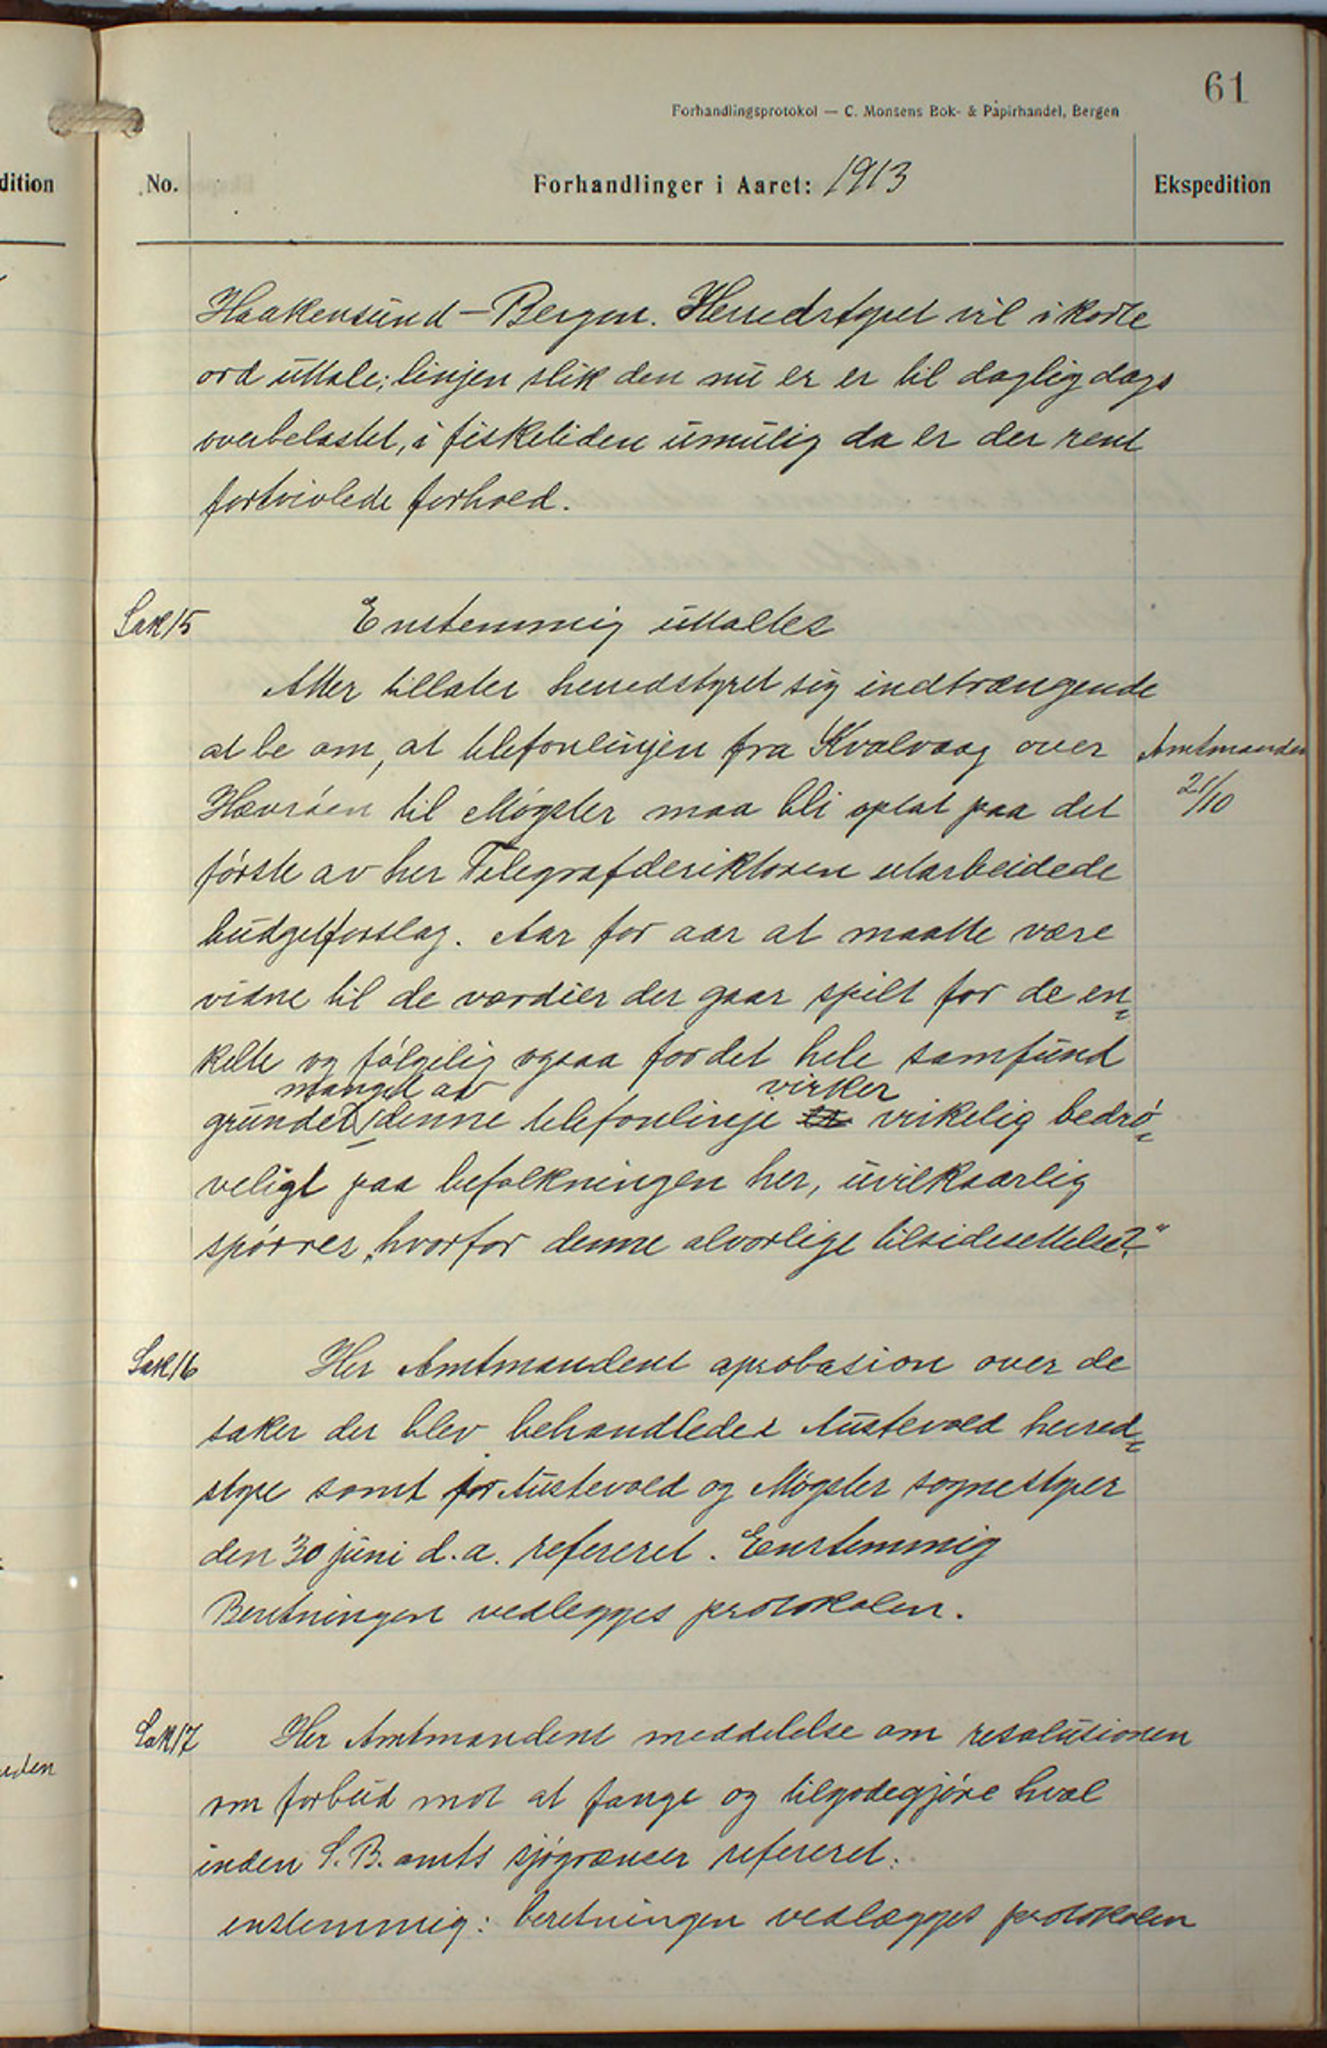 61
Forhandlingsprotokol — C. Monsens Bok- & Papirhandel, Bergen
dition
No.
Forhandlinger i Aaret: 1913
Ekspedition
Haakensund - Bergen. Herredstyret vil i korte
ord uttale; linjen slik den nu er er til daglig dags
overbelastet, i fisketiden umulig da er der rent
fortvivlede forhold.
Sak 15
Enstemmig uttaltes
Atter tillater herredstyret sig indtrængende
at be om, at telefonlinjen fra Kvalvaag over
Amtmanden
21/10
Hævröen til Møgster maa bli optat paa det
förste av her Telegrafderiktoren utarbeidede
budgetforslag. Aar for aar at maatte være
vidne til de værdier der gaar spilt for de en=
kelte og fölgelig ogsaa for det hele samfund
mangel av virker
grundet denne telefonlinje er virkelig bedrö=
veligt paa befolkningen her, uvilkaarlig
spörres „hvorfor denne alvorlige tilsidesettelse?"
Sak 16
Her Amtmandens aprobasion over de
saker der blev behandlede i Austevold herred=
styre samt for Austevold og Møgster sognestyrer
den 30 juni d.a. refereret. Enstemmig
Beretningen vedlegges protokolen.
Sak 17
Her Amtmandens meddelelse om resolusionen
om forbud mot at fange og tilgodegjöre hval
inden S. B. amts sjøgrænser refereret.
eden
enstemmig: beretningen vedlægges protokolen